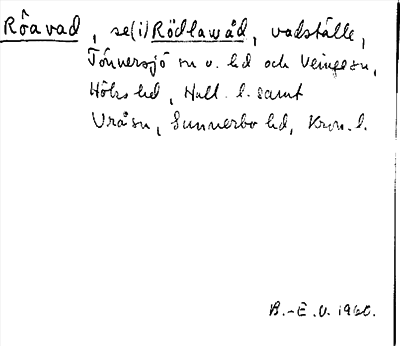 Röavad, se(i) Rödlawåd, vadställe,
Tönnersjö sn o. hd och Veinge sn,
Höks hd, Hall. l. samt
Vrå sn, Sunnerbo hd, Kron. l.
B.-E. O. 1960.